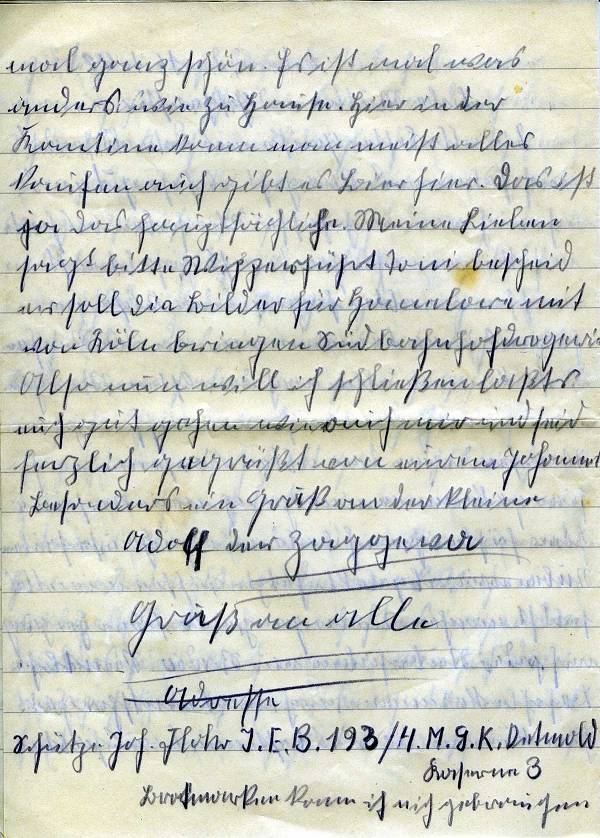 mal ganz schön. Es ist mal was
anders wie zu Hause. Hier in der
Kantine kann man meist alles
kaufen auch gibt es Bier hier. Das ist
ja das hauptsächliche. Meine Lieben
sagt bitte Wipperführt Toni bescheid
er soll die Bilder für mit
von Köln bringen Südbahnhofdrogerie
Also nun will ich schließen laßts
euch gut gehen wie auch mir und seid
herzlich gegrüßt von eurem Johannes
Besonders ein Gruß an der kleine
Adolf der
Gruß an alle
Adresse
Schütze Joh. Flohr I.E.B. 193/4. M.G.K. Detmold
Kaserne 3
Brotmarken kann ich nich gebrauchen